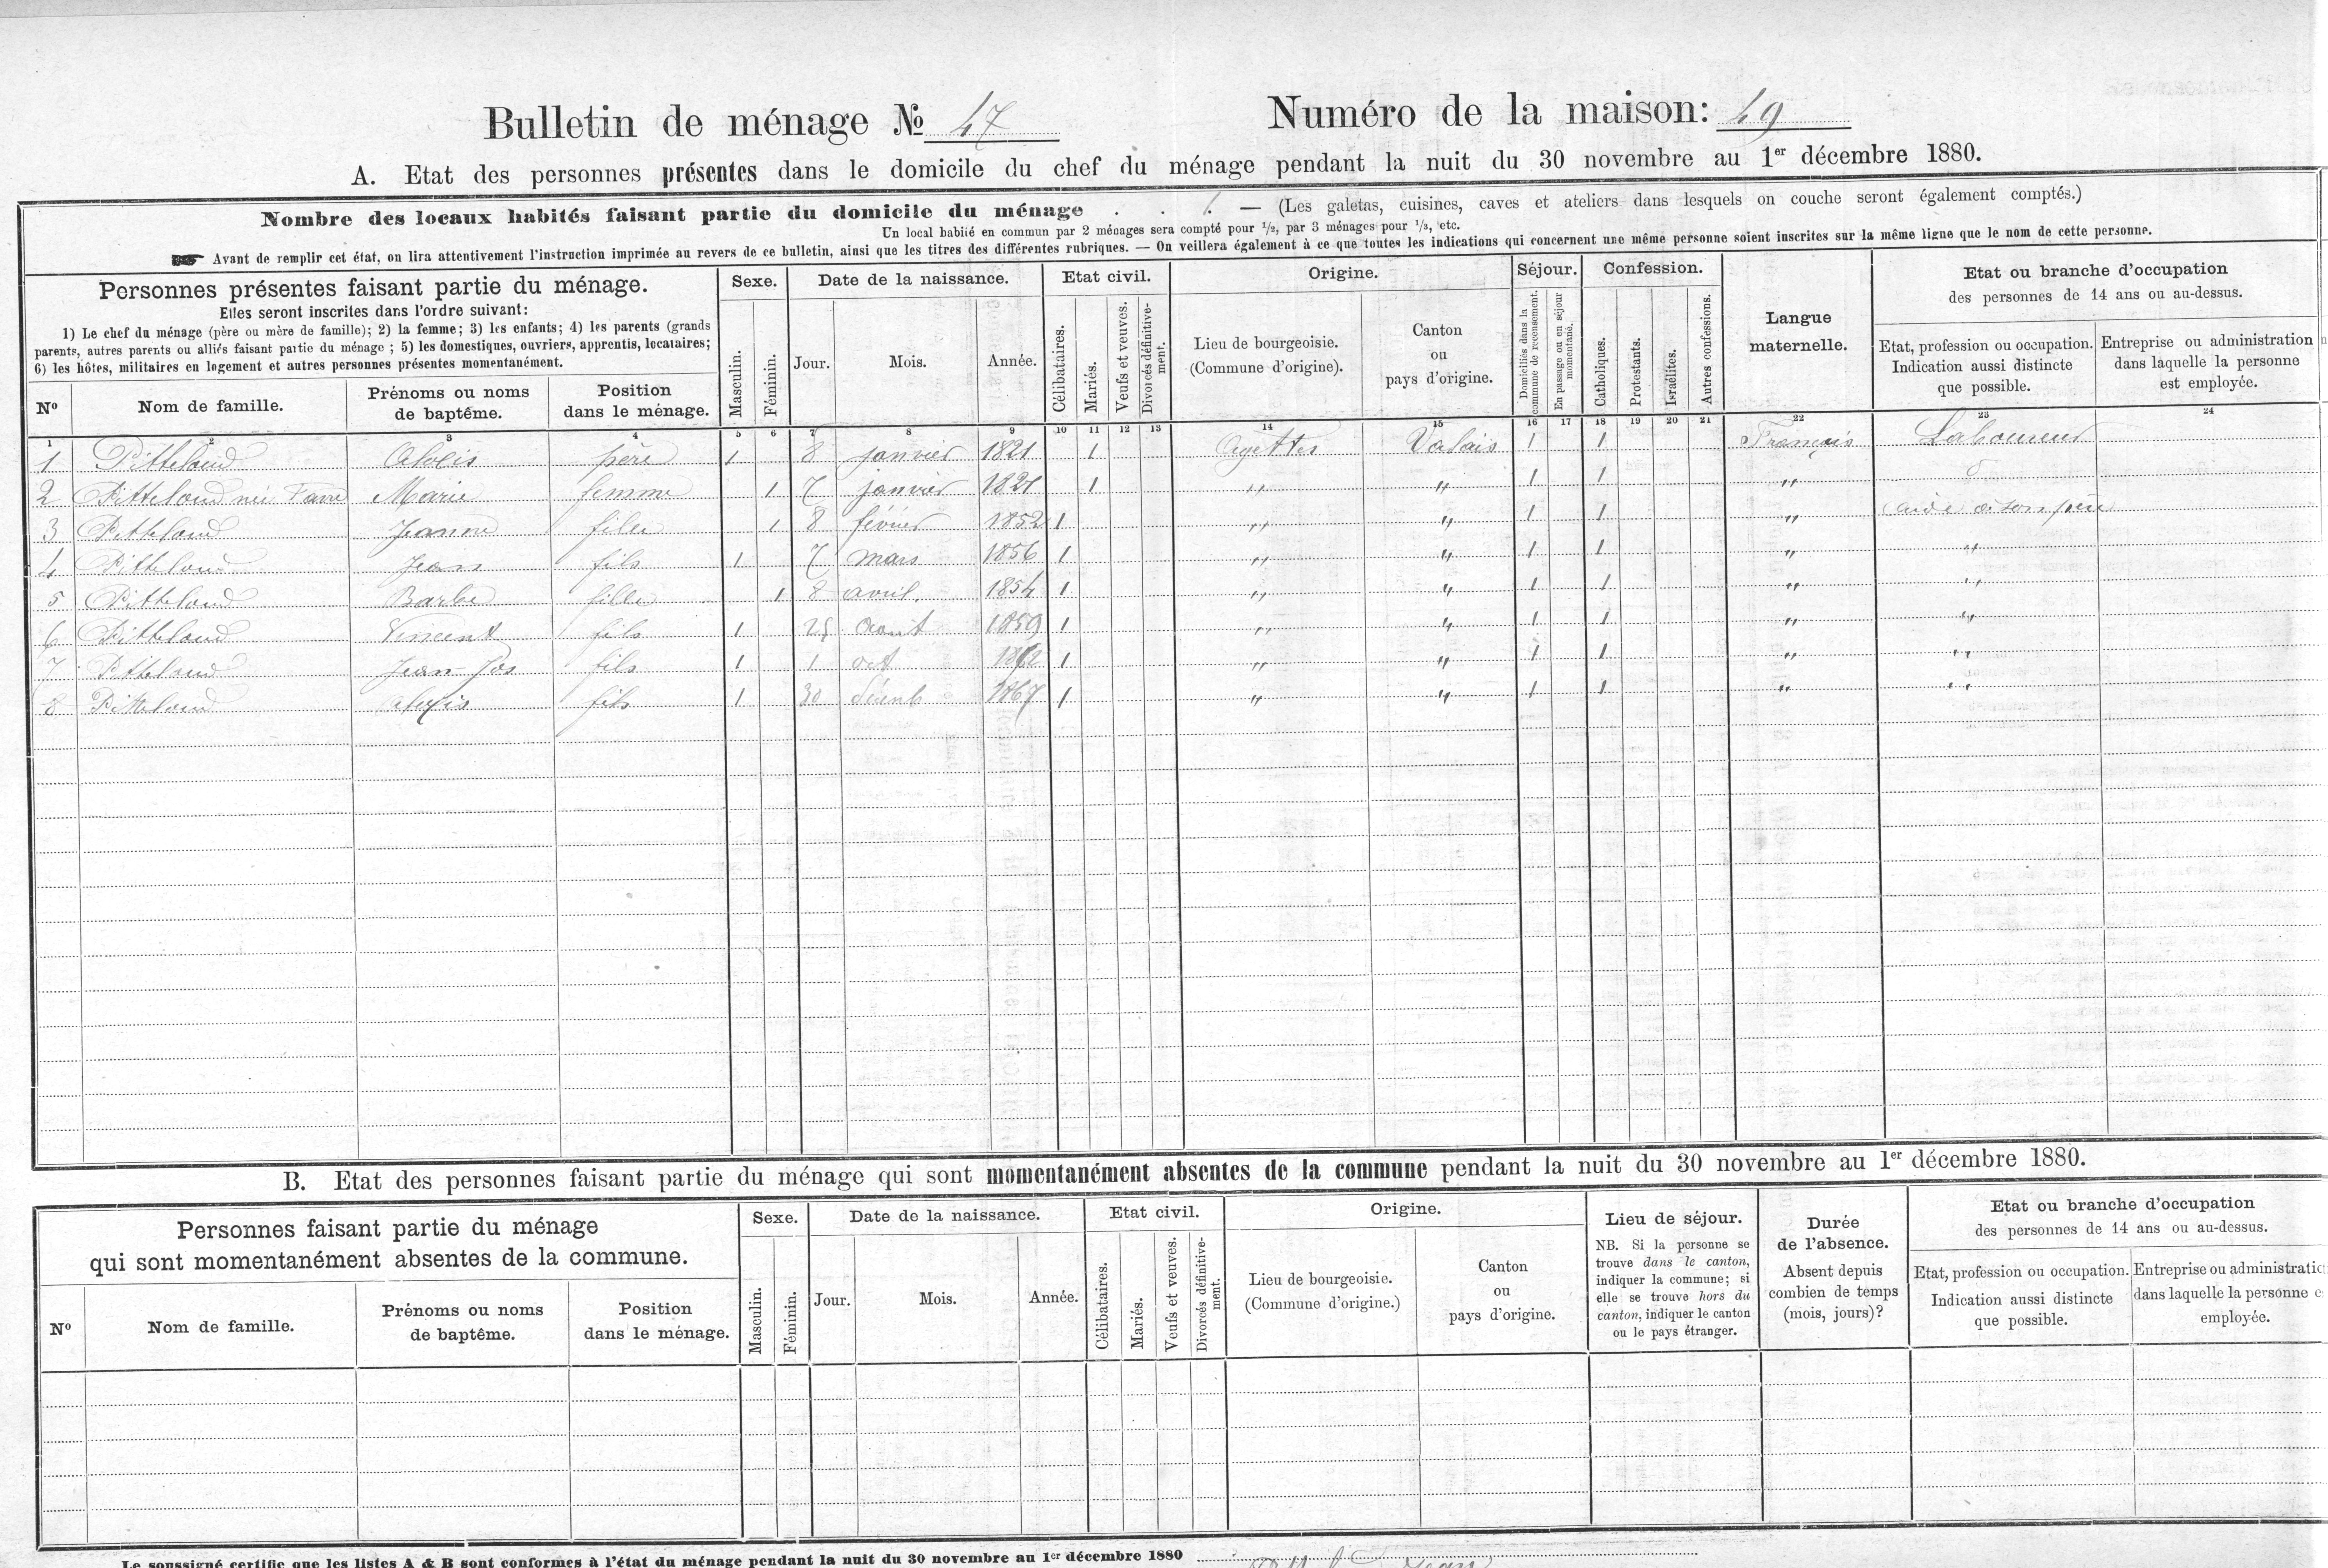 Bulletin de ménage № 47 Numéro de la maison: 49
A. Etat des personnes présentes dans le domicile du chef du ménage pendant la nuit du 30 novembre au 1er décembre 1880.
Nombre des locaux habités faisant partie du domicile du ménage . . 1. — (Les galetas, cuisines, caves et ateliers dans lesquels on couche seront également comptés.)
Un local habité en commun par 2 ménages sera compté pour 1/2, par 3 ménages pour 1/3, etc.
☛ Avant de remplir cet état, on lira attentivement l'instruction imprimée au revers de ce bulletin, ainsi que les titres des différentes rubriques. — On veillera également à ce que toutes les indications qui concernent une même personne soient inscrites sur la même ligne que le nom de cette personne.
Personnes présentes faisant partie du ménage.
Elles seront inscrites dans l'ordre suivant:
1) Le chef du ménage (père ou mère de famille); 2) la femme; 3) les enfants; 4) les parents (grands
parents, autres parents ou alliés faisant partie du ménage ; 5) les domestiques, ouvriers, apprentis, locataires;
6) les hôtes, militaires en logement et autres personnes présentes momentanément.
Nº Nom de famille. Prénoms ou noms de baptême. Position dans le ménage.
Sexe. Masculin. Féminin.
Date de la naissance. Jour. Mois. Année.
Etat civil. Célibataires. Mariés. Veufs et veuves. Divorcés définitivement.
Origine. Lieu de bourgeoisie. (Commune d'origine). Canton ou pays d'origine.
Séjour. Domiciliés dans la commune de recensement. En passage ou en séjour momentané.
Confession. Catholiques. Protestants. Israélites. Autres confessions.
Langue maternelle.
Etat ou branche d'occupation des personnes de 14 ans ou au-dessus.
Etat, profession ou occupation. Indication aussi distincte que possible.
Entreprise ou administration dans laquelle la personne est employée.
1 2 3 4 5 6 7 8 9 10 11 12 13 14 15 16 17 18 19 20 21 22 23 24
1 Pitteloud Alexis père 1 8 janvier 1821 1 Agettes Valais 1 1 Français Laboureur
2 Pitteloud née Favre Marie femme 1 7 janvier 1821 1 " " 1 1 "
3 Pitteloud Jeanne fille 1 8 février 1852 1 " " 1 1 " aide à son père
4 Pitteloud Jean fils 1 7 mars 1856 1 " " 1 1 " "
5 Pitteloud Barbe fille 1 8 avril. 1854 1 " " 1 1 " "
6 Pitteloud Vincent fils 1 25 aout 1859 1 " " 1 1 " "
7 Pitteloud Jean-Jos fils 1 1 oct 1862 1 " " 1 1 " "
8 Pitteloud Alexis fils 1 30 1867 1 " " 1 1 " "
B. Etat des personnes faisant partie du ménage qui sont momentanément absentes de la commune pendant la nuit du 30 novembre au 1er décembre 1880.
Personnes faisant partie du ménage
qui sont momentanément absentes de la commune.
Nº Nom de famille. Prénoms ou noms de baptême. Position dans le ménage.
Sexe. Masculin. Féminin.
Date de la naissance. Jour. Mois. Année.
Etat civil. Célibataires. Mariés. Veufs et veuves. Divorcés définitivement.
Origine. Lieu de bourgeoisie. (Commune d'origine.) Canton ou pays d'origine.
Lieu de séjour.
NB. Si la personne se
trouve dans le canton,
indiquer la commune; si
elle se trouve hors du
canton, indiquer le canton
ou le pays étranger.
Durée de l'absence.
Absent depuis combien de temps (mois, jours)?
Etat ou branche d'occupation des personnes de 14 ans ou au-dessus.
Etat, profession ou occupation. Indication aussi distincte que possible.
Entreprise ou administratio dans laquelle la personne e employée.
Le soussigné certifie que les listes A & B sont conformes à l'état du ménage pendant la nuit du 30 novembre au 1er décembre 1880